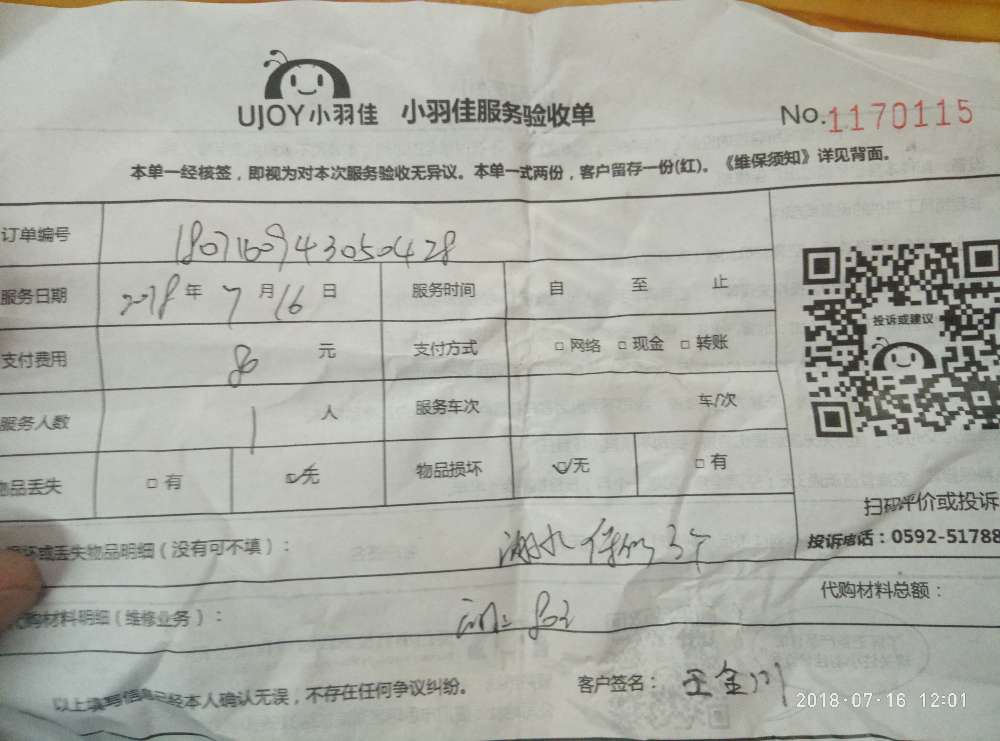 UJOY小羽佳 小羽佳服务验收单 No.1170115
本单一经核签，即视为对本次服务验收无异议。本单一式两份，客户留存一份(红)。《维保须知》详见背面。
订单编号 1807160943050428
服务日期 2018年7月16日 服务时间 自 至 止
投诉或建议
支付费用 80 元 支付方式 □网络 □现金 □转账
服务人数 1 人 服务车次 车/次
物品丢失 □有 ☑无 物品损坏 ☑无 □有
扫码评价或投诉
坏或丢失物品明细（没有可不填）： 3个
投诉电话：0592-51788
代购材料明细（维修业务）： 代购材料总额：
以上填写信息已经本人确认无误，不存在任何争议纠纷。 客户签名： 王金川
2018-07-16 12:01